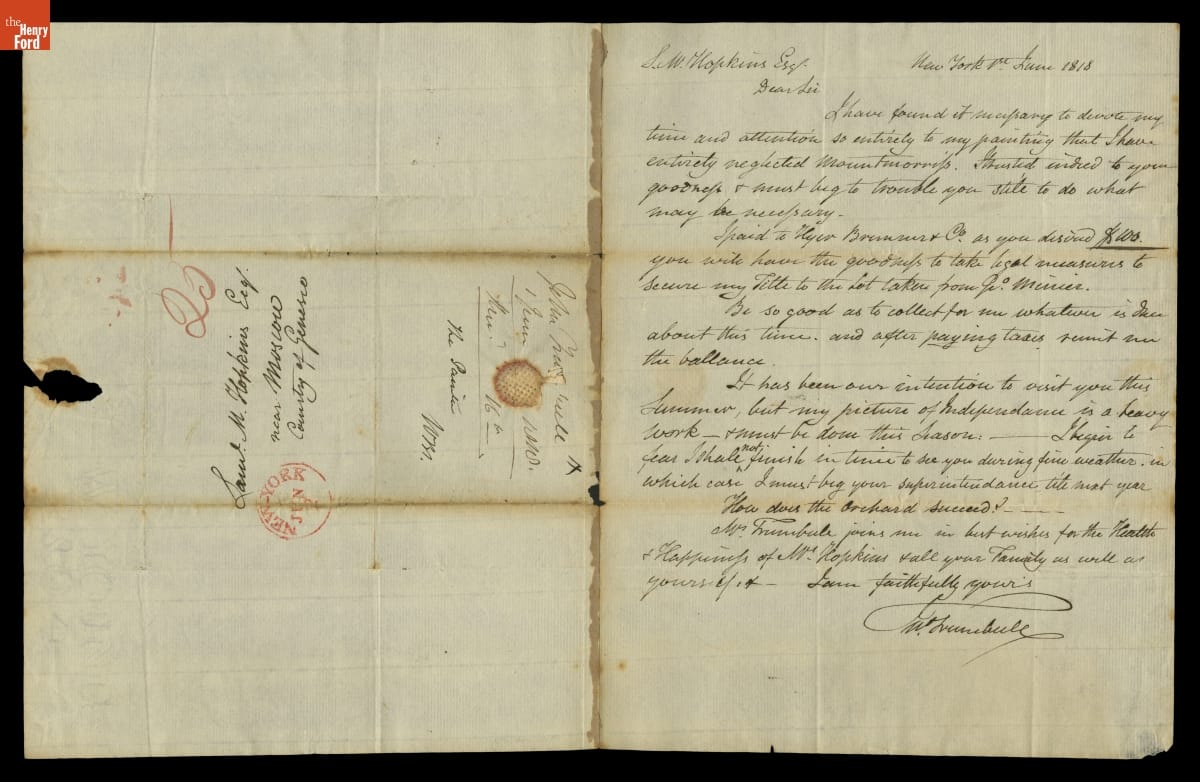 the
Henry
Ford
S. M. Hopkins Esqr.
New York 1st. June 1818
Dear Sir
I have found it necessary to devote my
time and attention so entirely to my painting that I have
entirely neglected Mountmorriss. I trusted indeed to your
goodness & must beg to trouble you still to do what
may be necessary.
I paid to Hyer Bremner & Co. as you desired $100.
you will have the goodness to take legal measures to
secure my Title to the Lot taken from Geo. Minier.
Be so good as to collect for me whatever is Due
about this time. and after paying taxes remit me
the ballance.
It has been our intention to visit you this
Summer, but my picture of Independance is a heavy
work — & must be done this Season. — I begin to
fear I shall not finish in time to see you during fine weather. in
which case I must beg your superintendance till next year
How does the Orchard succeed? — — —
Mrs. Trumbull joins me in best wishes for the Health
& Happiness of Mrs. Hopkins & all your Family as well as
yourself. & — I am faithfully yours
Jno. Trumbull
25
Saml. M. Hopkins Esq.
near Moscow
County of Genesio
NEW-YORK
JUN
John Trumbull
1 June 1818.
16th
The Painter